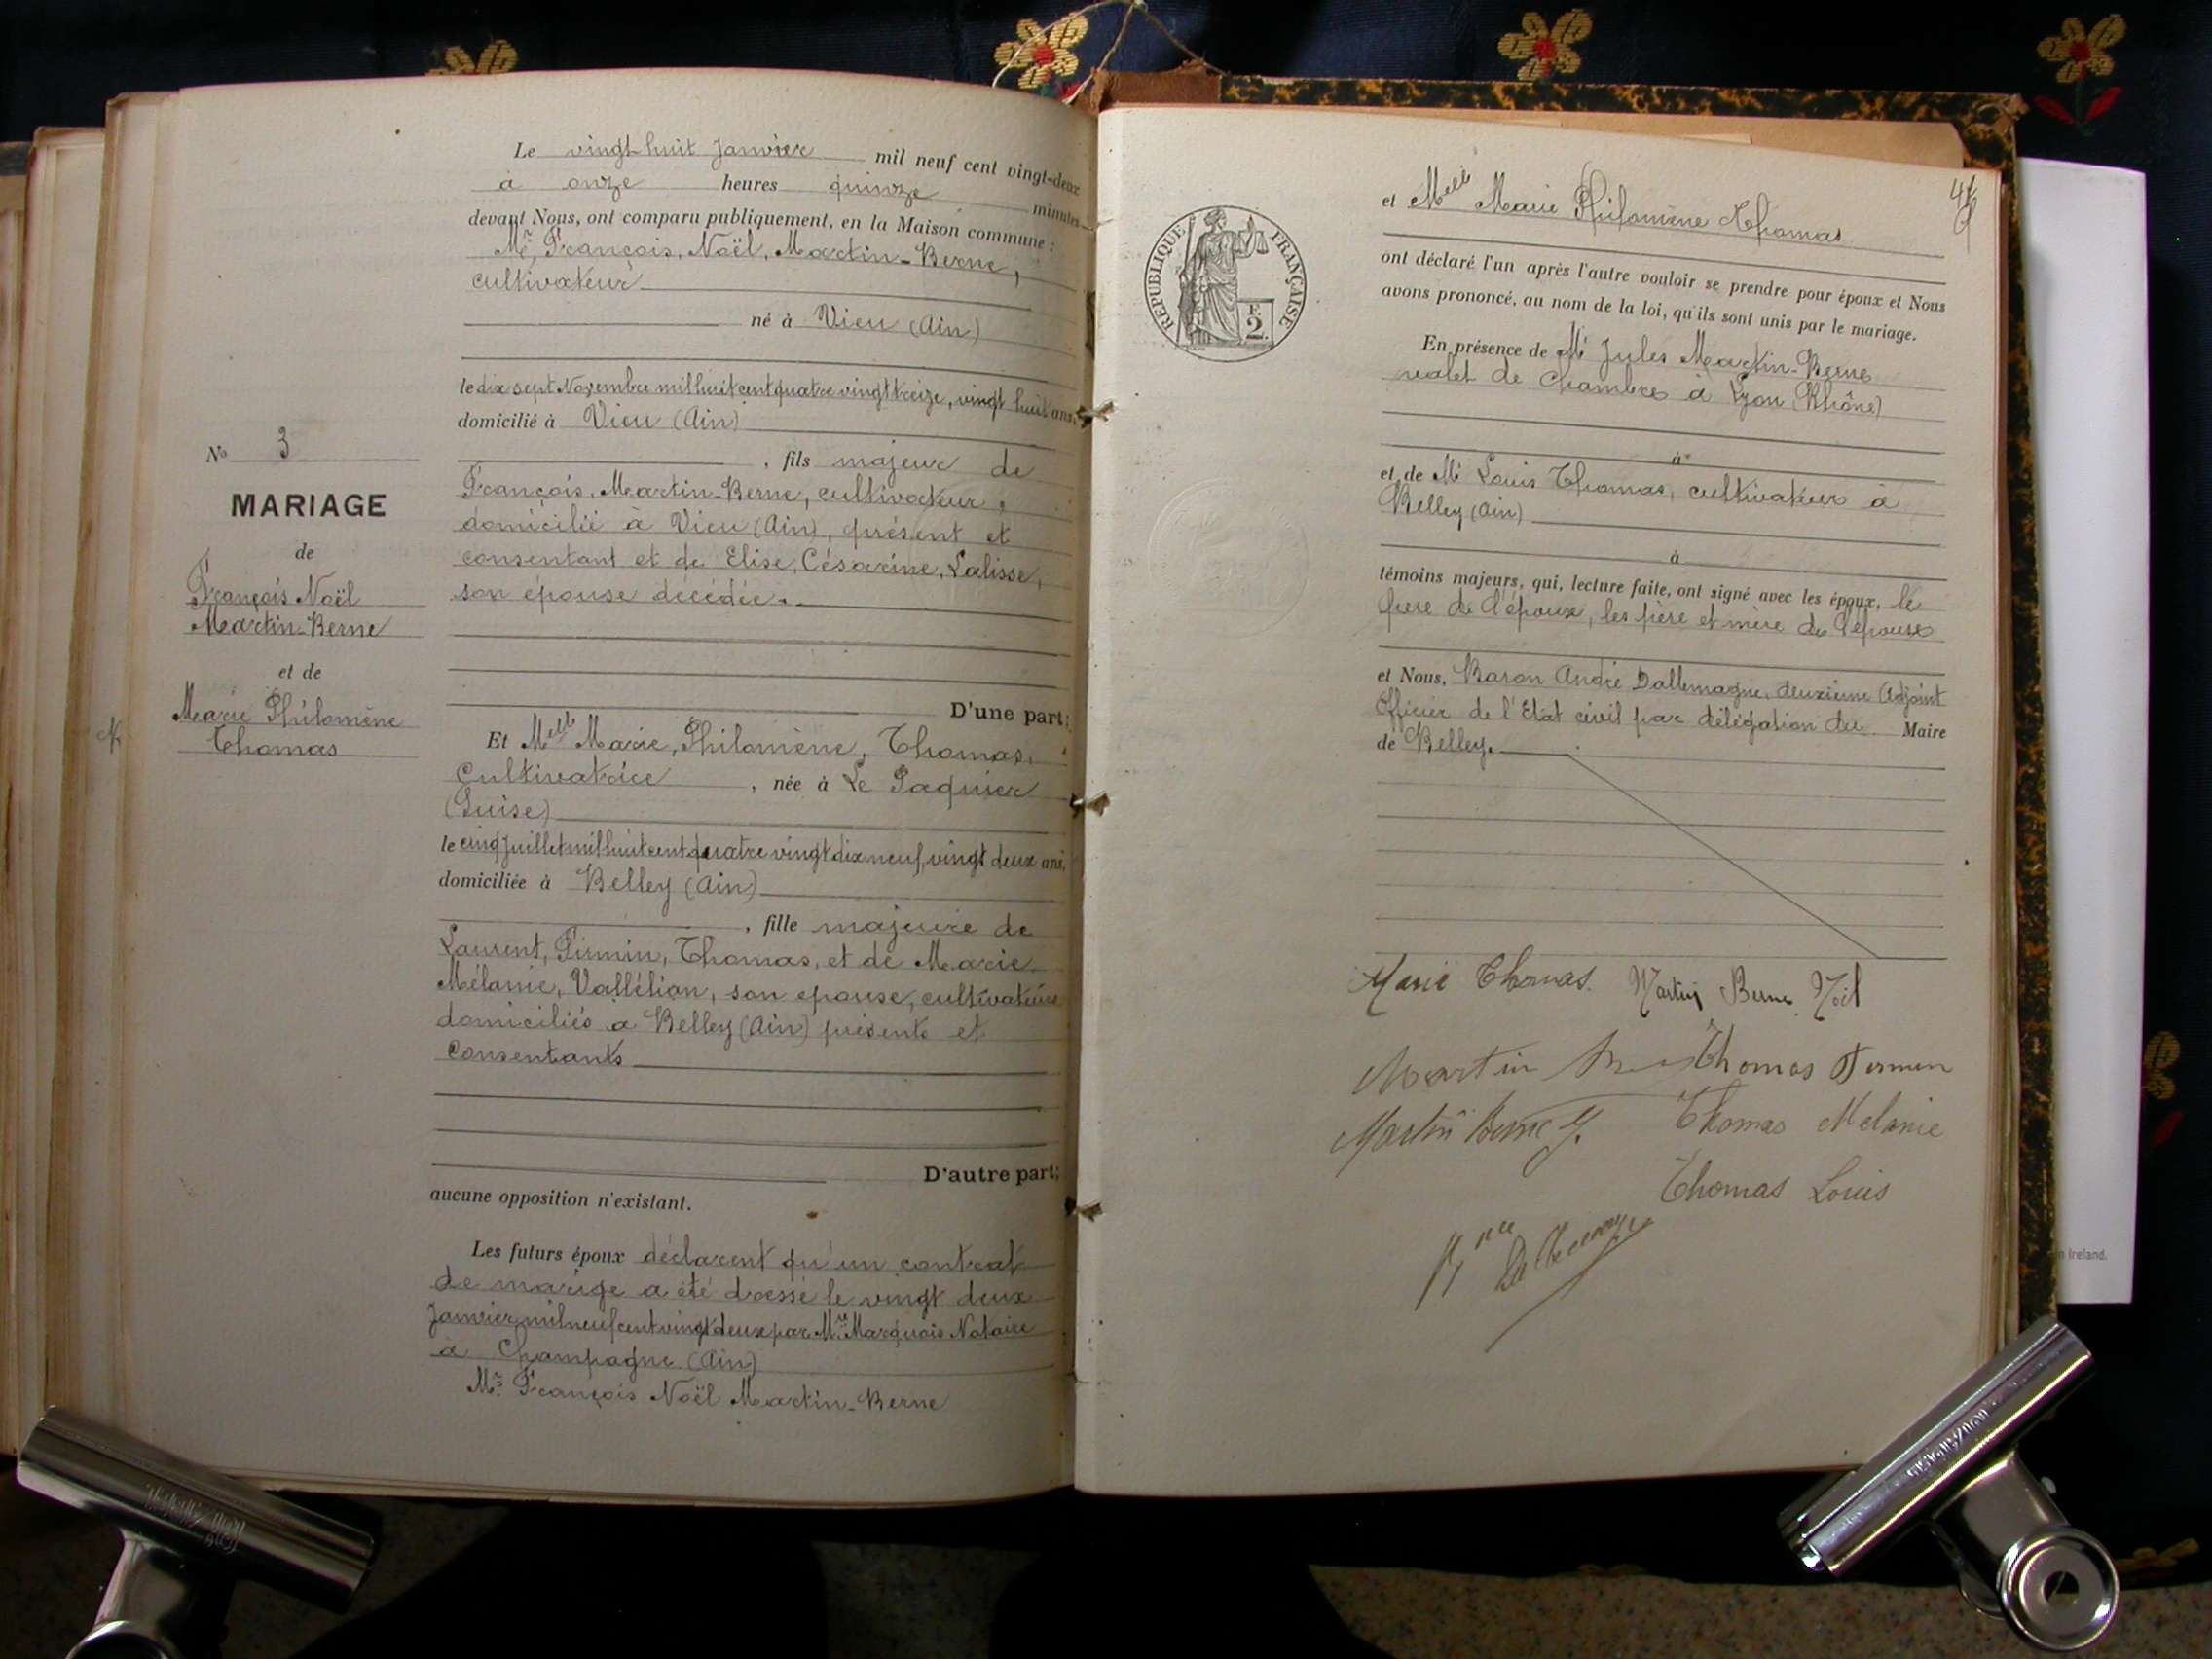 Le vingt-huit Janvier mil neuf cent vingt-deux
à onze heures quinze minutes
devant Nous, ont comparu publiquement, en la Maison commune :
Mr, François, Noël, Martin-Berne,
cultivateur
né à Vieu (Ain)
le dix sept Novembre mil huit cent quatre vingt treize, vingt huit ans,
domicilié à Vieu (Ain)
, fils majeur de
François, Martin-Berne, cultivateur,
domicilié à Vieu (Ain), présent et
consentant et de Elise, Césarine, Lalisse,
son épouse décédée.
D'une part;
Et Melle Marie, Philomène, Thomas,
Cultivatrice , née à Le Paquier
(Suise)
le cinq Juillet mil huit cent quatre vingt dix neuf, vingt deux ans,
domiciliée à Belley (Ain)
, fille majeure de
Laurent, Firmin, Thomas, et de Marie
Mélanie, Vallélian, son epouse, cultivateurs
domiciliés à Belley (Ain) présents et
Consentants
D'autre part;
aucune opposition n'existant.
Les futurs époux déclarent qu'un contrat
de marige a été dressé le vingt deux
Janvier mil neuf cent vingt deux par Mre Marquois Notaire
à Champagne (Ain)
Mr. François Noël Martin-Berne
No 3
MARIAGE
de
François Noël
Martin-Berne
et de
Marie Philomène
Thomas
N
RÉPUBLIQUE FRANÇAISE
2
et Melle Marie Philomène Thomas
ont déclaré l'un après l'autre vouloir se prendre pour époux et Nous
avons prononcé, au nom de la loi, qu'ils sont unis par le mariage.
En présence de Mr Jules Martin-Berne
valet de chambre à Lyon (Rhône)
à
et de Mr Louis Thomas, cultivateur à
Belley (Ain)
à
témoins majeurs, qui, lecture faite, ont signé avec les époux, le
père de l'époux, les père et mère de l'épouse
et Nous, Baron André Dallemagne, deuxième Adjoint
Officier de l'Etat civil par délégation du Maire
de Belley.
Marie Thomas. Martin Berne Noël
Martin Thomas Firmin
Martin Berne J. Thomas Melanie
Thomas Louis
Bon Dallemagne
in Ireland.